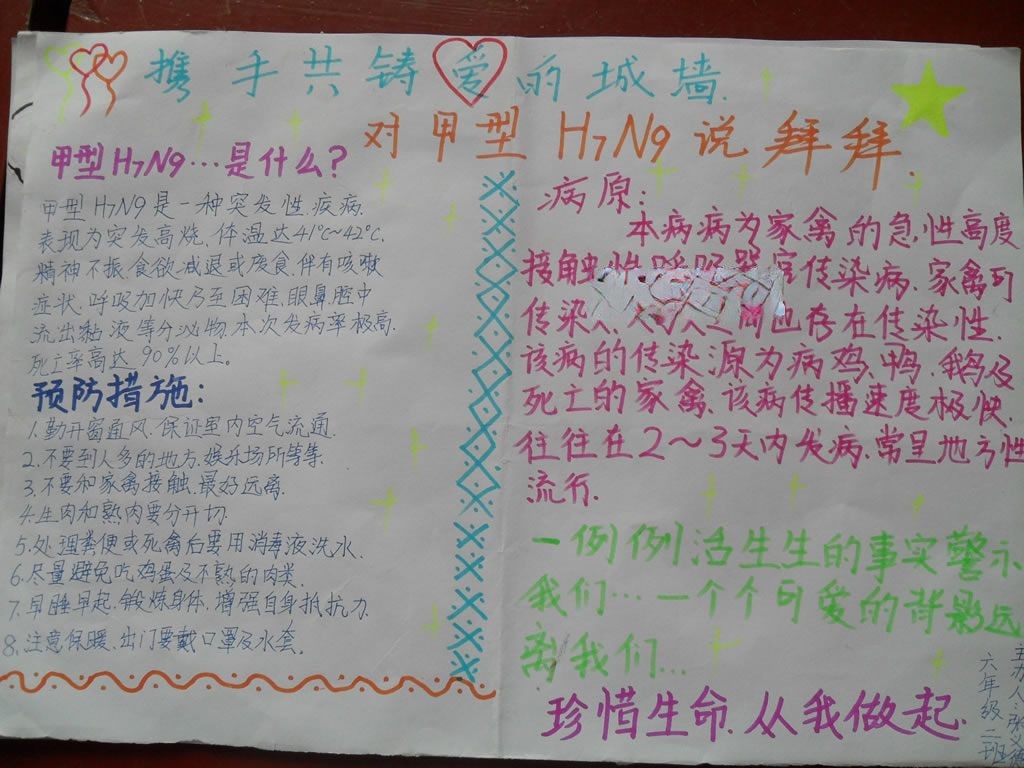 携手共铸爱的城墙.
对甲型H7N9说拜拜.
甲型H7N9…是什么?
甲型H7N9是一种突发性.疾病.
表现为突发高烧、体温达41℃~42℃.
精神不振.食欲减退或废食.伴有咳嗽
症状.呼吸加快乃至困难.眼鼻腔中
流出黏液等分泌物.本次发病率极高.
死亡率高达90%以上。
预防措施:
1.勤开窗通风.保证室内空气流通.
2.不要到人多的地方.娱乐场所等等.
3.不要和家禽接触.最好远离.
4.生肉和熟肉要分开切.
5.处理粪便或死禽后要用消毒液洗水.
6.尽量避免吃鸡蛋及不熟的肉类.
7.早睡早起.锻炼身体.增强自身抵抗力.
8.注意保暖.出门要戴口罩及水套.
病原:
本病病为家禽的急性高度
接触性呼吸器官传染病.家禽到
传染人.人与人之间也存在传染性.
该病的传染源为病鸡.鸭.鹅及
死亡的家禽.该病传播速度极快.
往往在2~3天内发病.常呈地方性
流行.
一例例活生生的事实警示
我们…一个个可爱的背影远
离我们…
珍惜生命.从我做起.
六年级二班
主办人:张义德